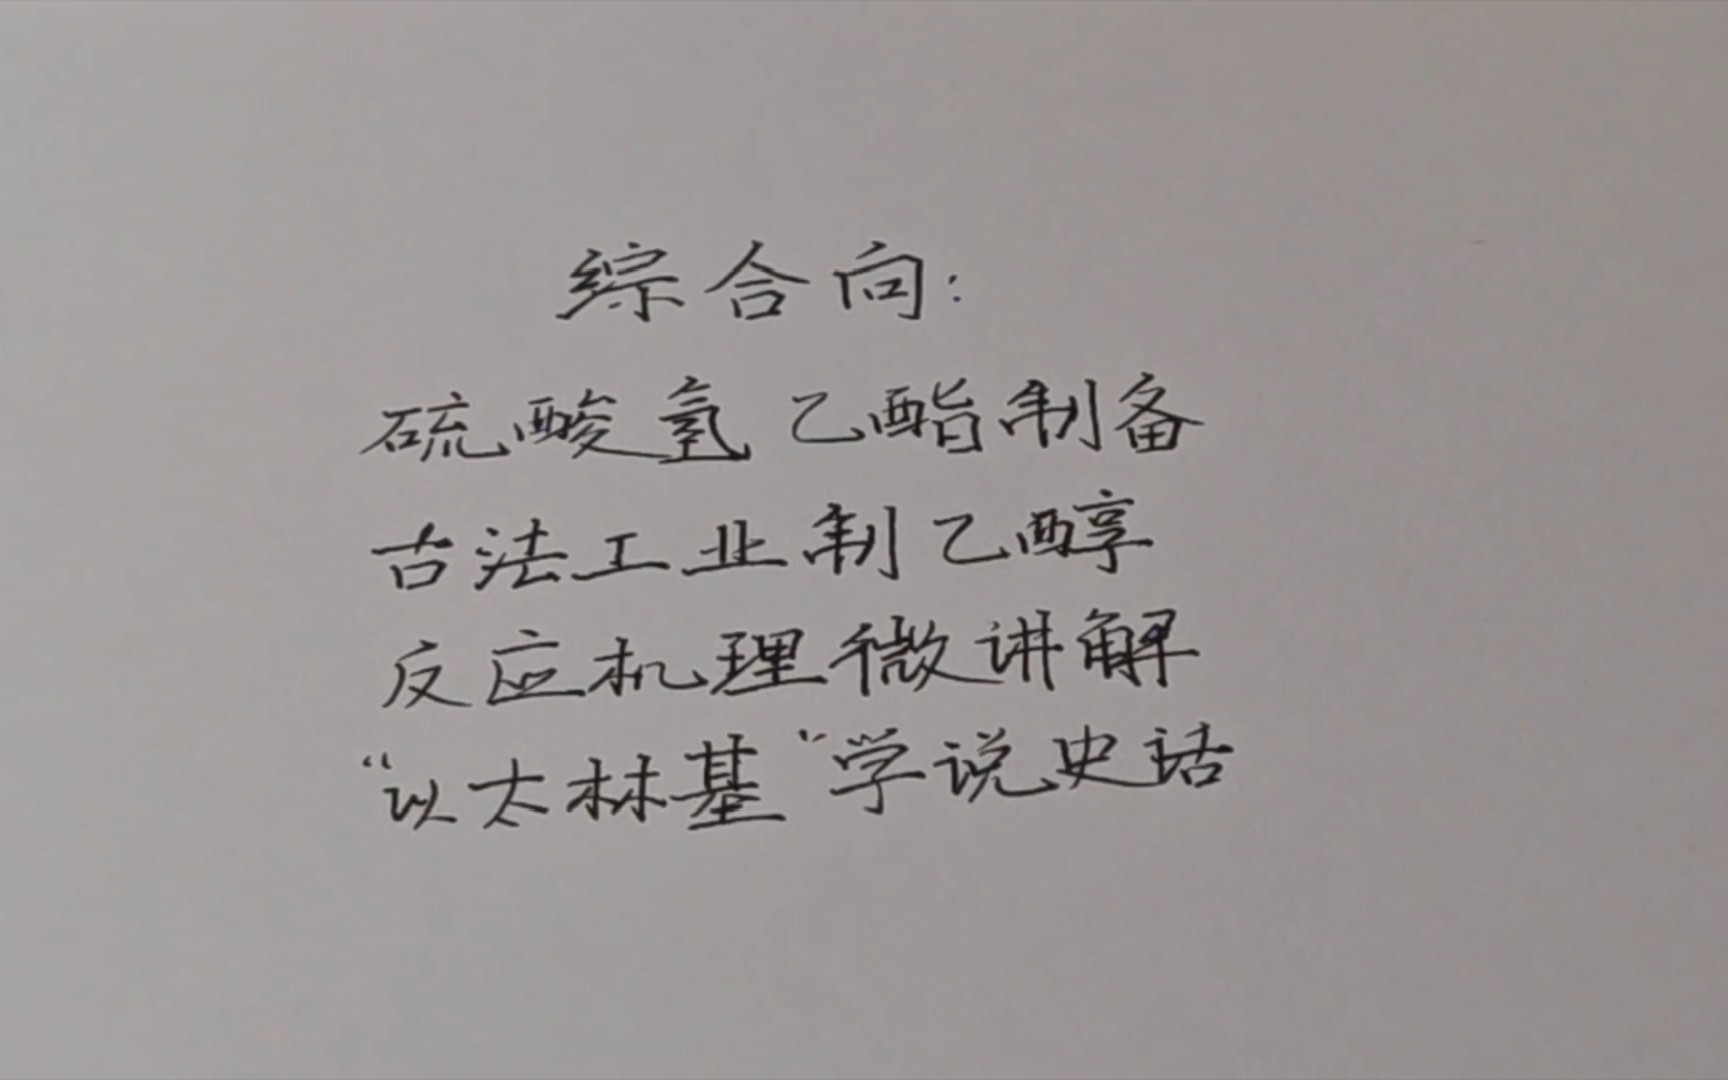 综合向:
硫酸氢乙酯制备
古法工业制乙醇
反应机理微讲解
“以太林基”学说史话